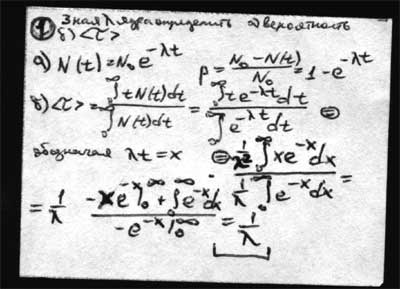 ① Зная λ ядра определить а) вероятность
б) <τ>
а) N(t)=N₀e^{-λt} p = (N₀-N(t))/N₀ = 1-e^{-λt}
б) <τ> = ∫₀^∞ tN(t)dt / ∫₀^∞ N(t)dt = ∫₀^∞ te^{-λt}dt / ∫₀^∞ e^{-λt}dt ⊜
обозначая λt=x ⊜ (1/λ² ∫₀^∞ xe^{-x}dx) / (1/λ ∫₀^∞ e^{-x}dx) =
= 1/λ (-xe^{-x}|₀^∞ + ∫₀^∞ e^{-x}dx) / (-e^{-x}|₀^∞) = 1/λ